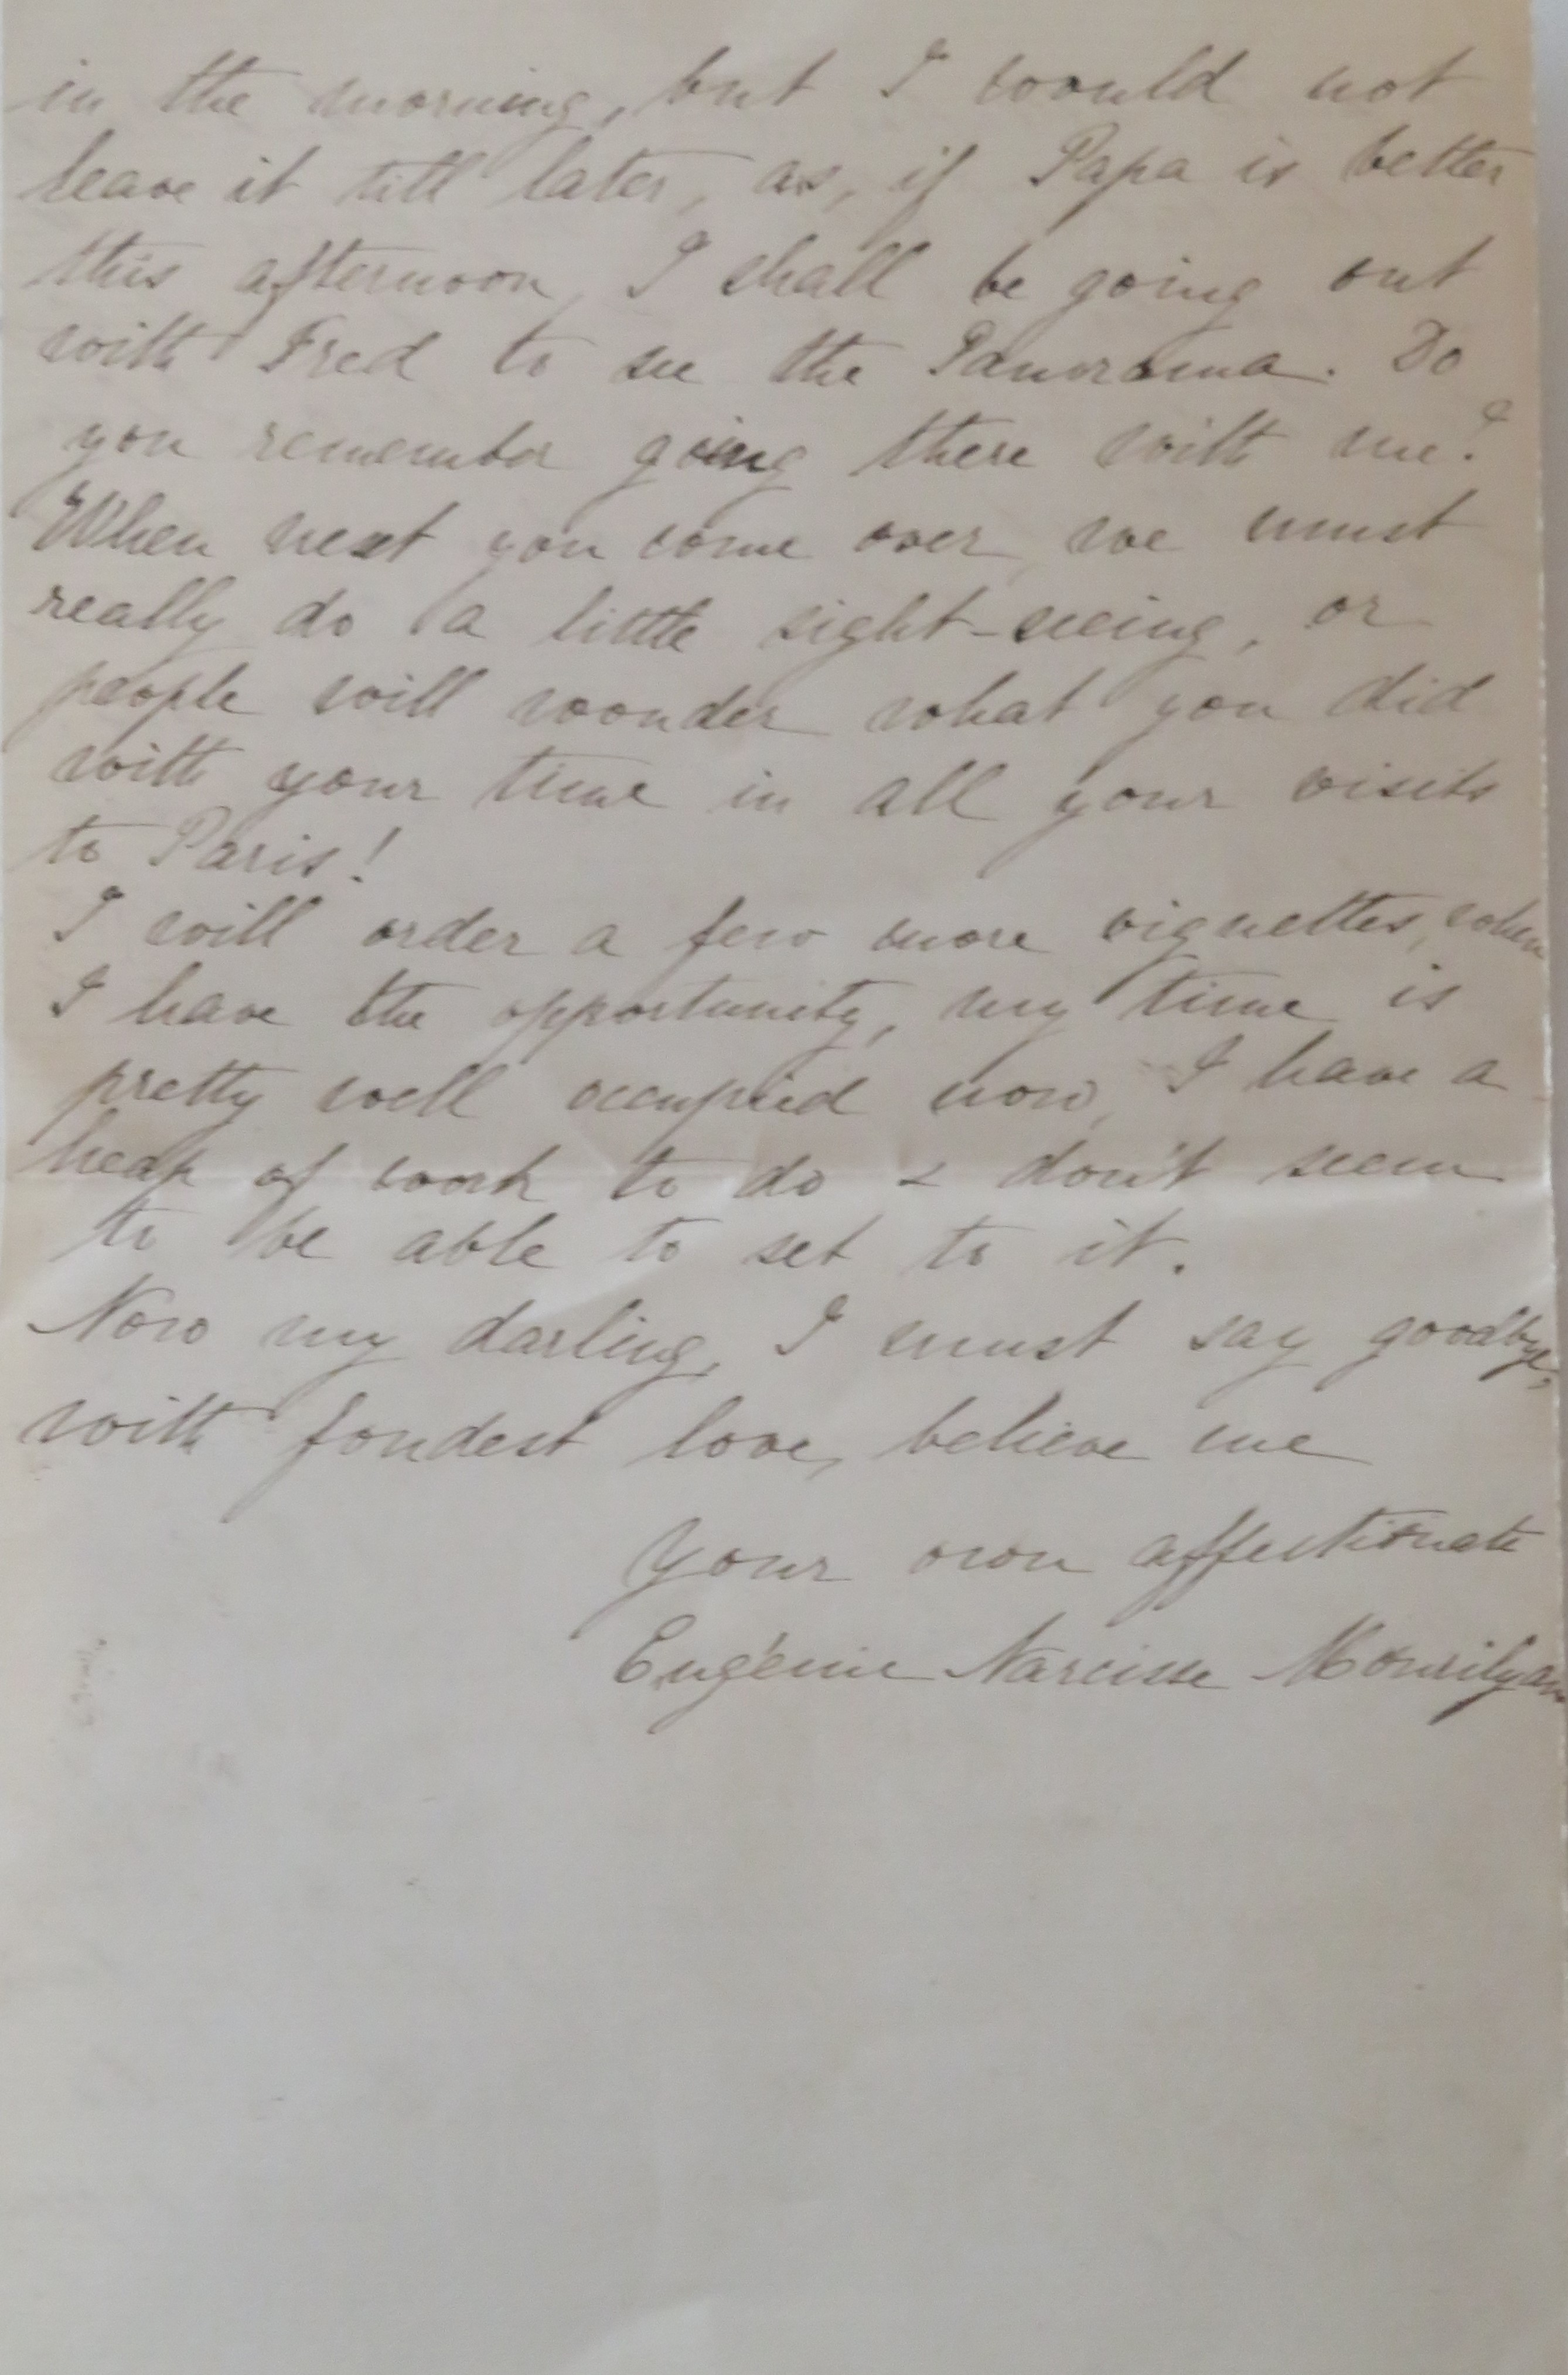 in the morning, but I would not
leave it till later, as, if Papa is better
this afternoon, I shall be going out
with Fred to see the Panorama. Do
you remember going there with me?
When next you come over, we must
really do a little sight-seeing, or
people will wonder what you did
with your time in all your visits
to Paris!
I will order a few more vignettes, when
I have the opportunity, my time is
pretty well occupied now, I have a
heap of work to do & don't seem
to be able to set to it.
Now my darling, I must say goodbye,
with fondest love, believe me
Your own affectionate
Eugénie Narcisse Mourilyan